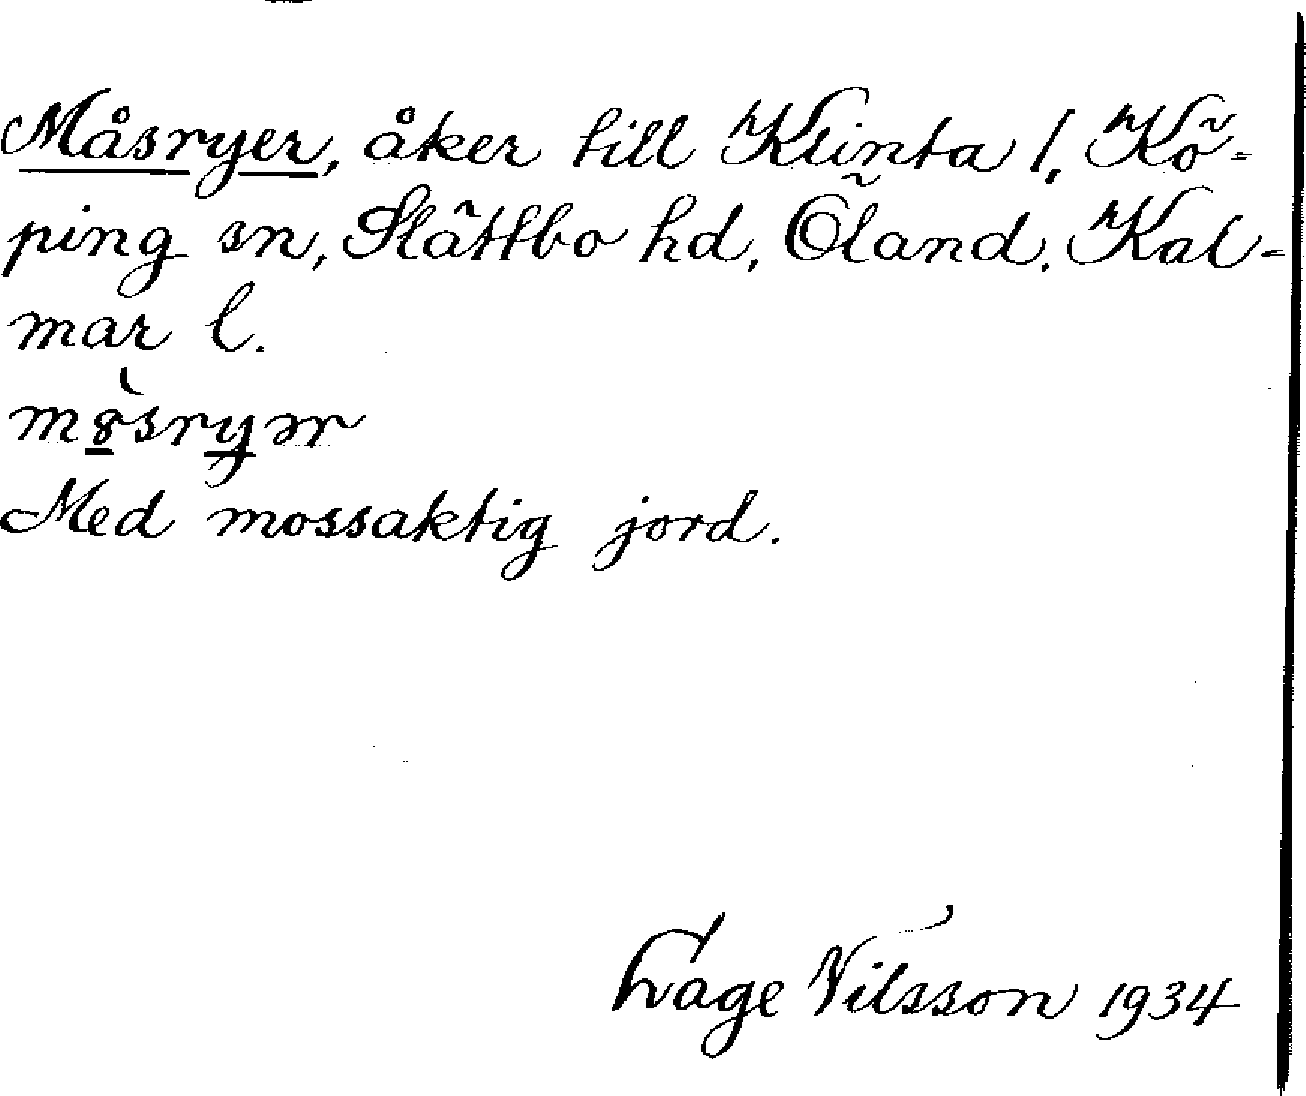 Måsryer, åker till Klinta 1, Kö-
ping sn, Slättbo hd, Öland. Kal-
mar l.
Med mossaktig jord.
Åage Nilsson 1934